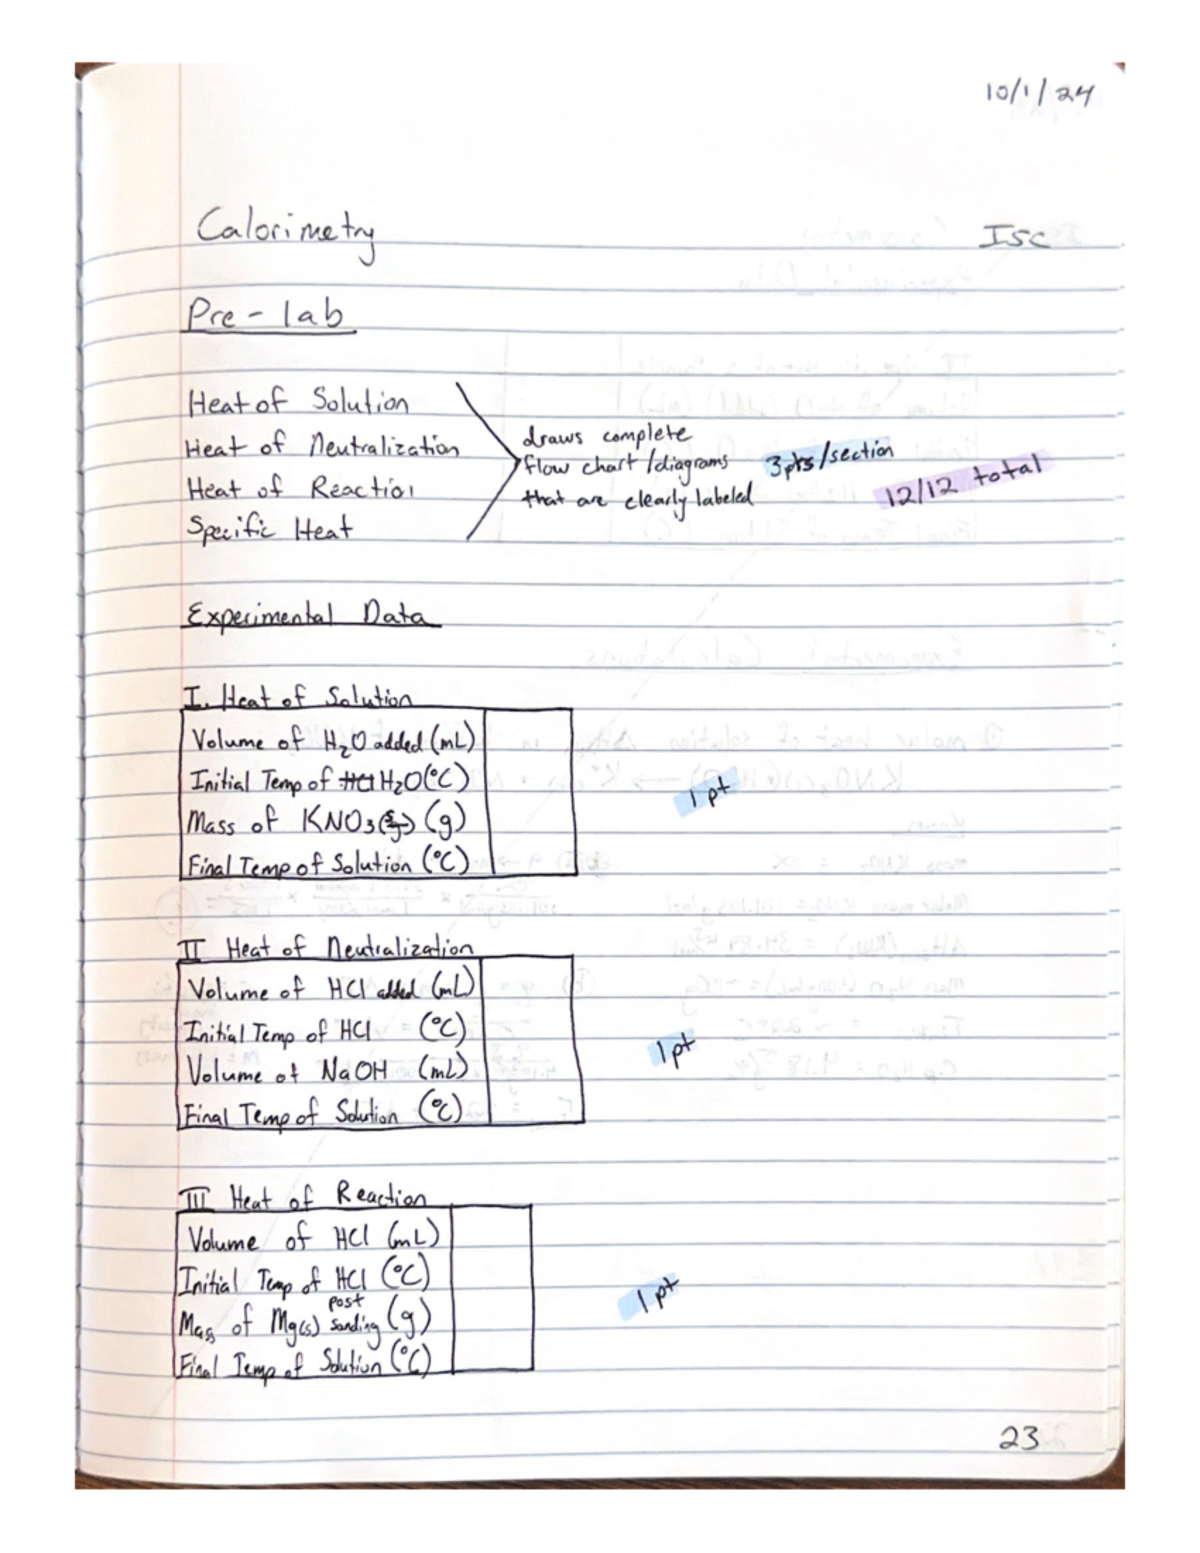 10/1/24
Calorimetry ISC
Pre-lab
Heat of Solution
Heat of Neutralization
Heat of Reaction
Specific Heat
draws complete
flow chart/diagrams
that are clearly labeled
3pts/section
12/12 total
Experimental Data
I. Heat of Solution
Volume of H₂O added (mL)
Initial Temp of HCl H₂O (°C)
Mass of KNO₃(s) (g)
Final Temp of Solution (°C)
1 pt
II Heat of Neutralization
Volume of HCl added (mL)
Initial Temp of HCl (°C)
Volume of NaOH (mL)
Final Temp of Solution (°C)
1 pt
III Heat of Reaction
Volume of HCl (mL)
Initial Temp of HCl (°C)
Mass of Mg(s) post sanding (g)
Final Temp of Solution (°C)
1 pt
23